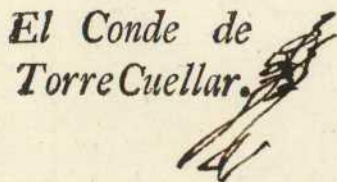 El Conde de
Torre Cuellar.